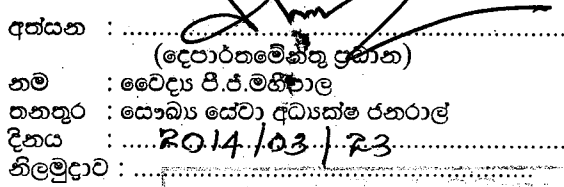 අත්සන : ..........
(දෙපාර්තමේන්තු ප්‍රධාන)
නම : වෛද්‍ය පී.ජී.මහීපාල
තනතුර : සෞඛ්‍ය සේවා අධ්‍යක්ෂ ජනරාල්
දිනය : ..... 2014/03/23 ..........
නිලමුද්‍රාව : ..........